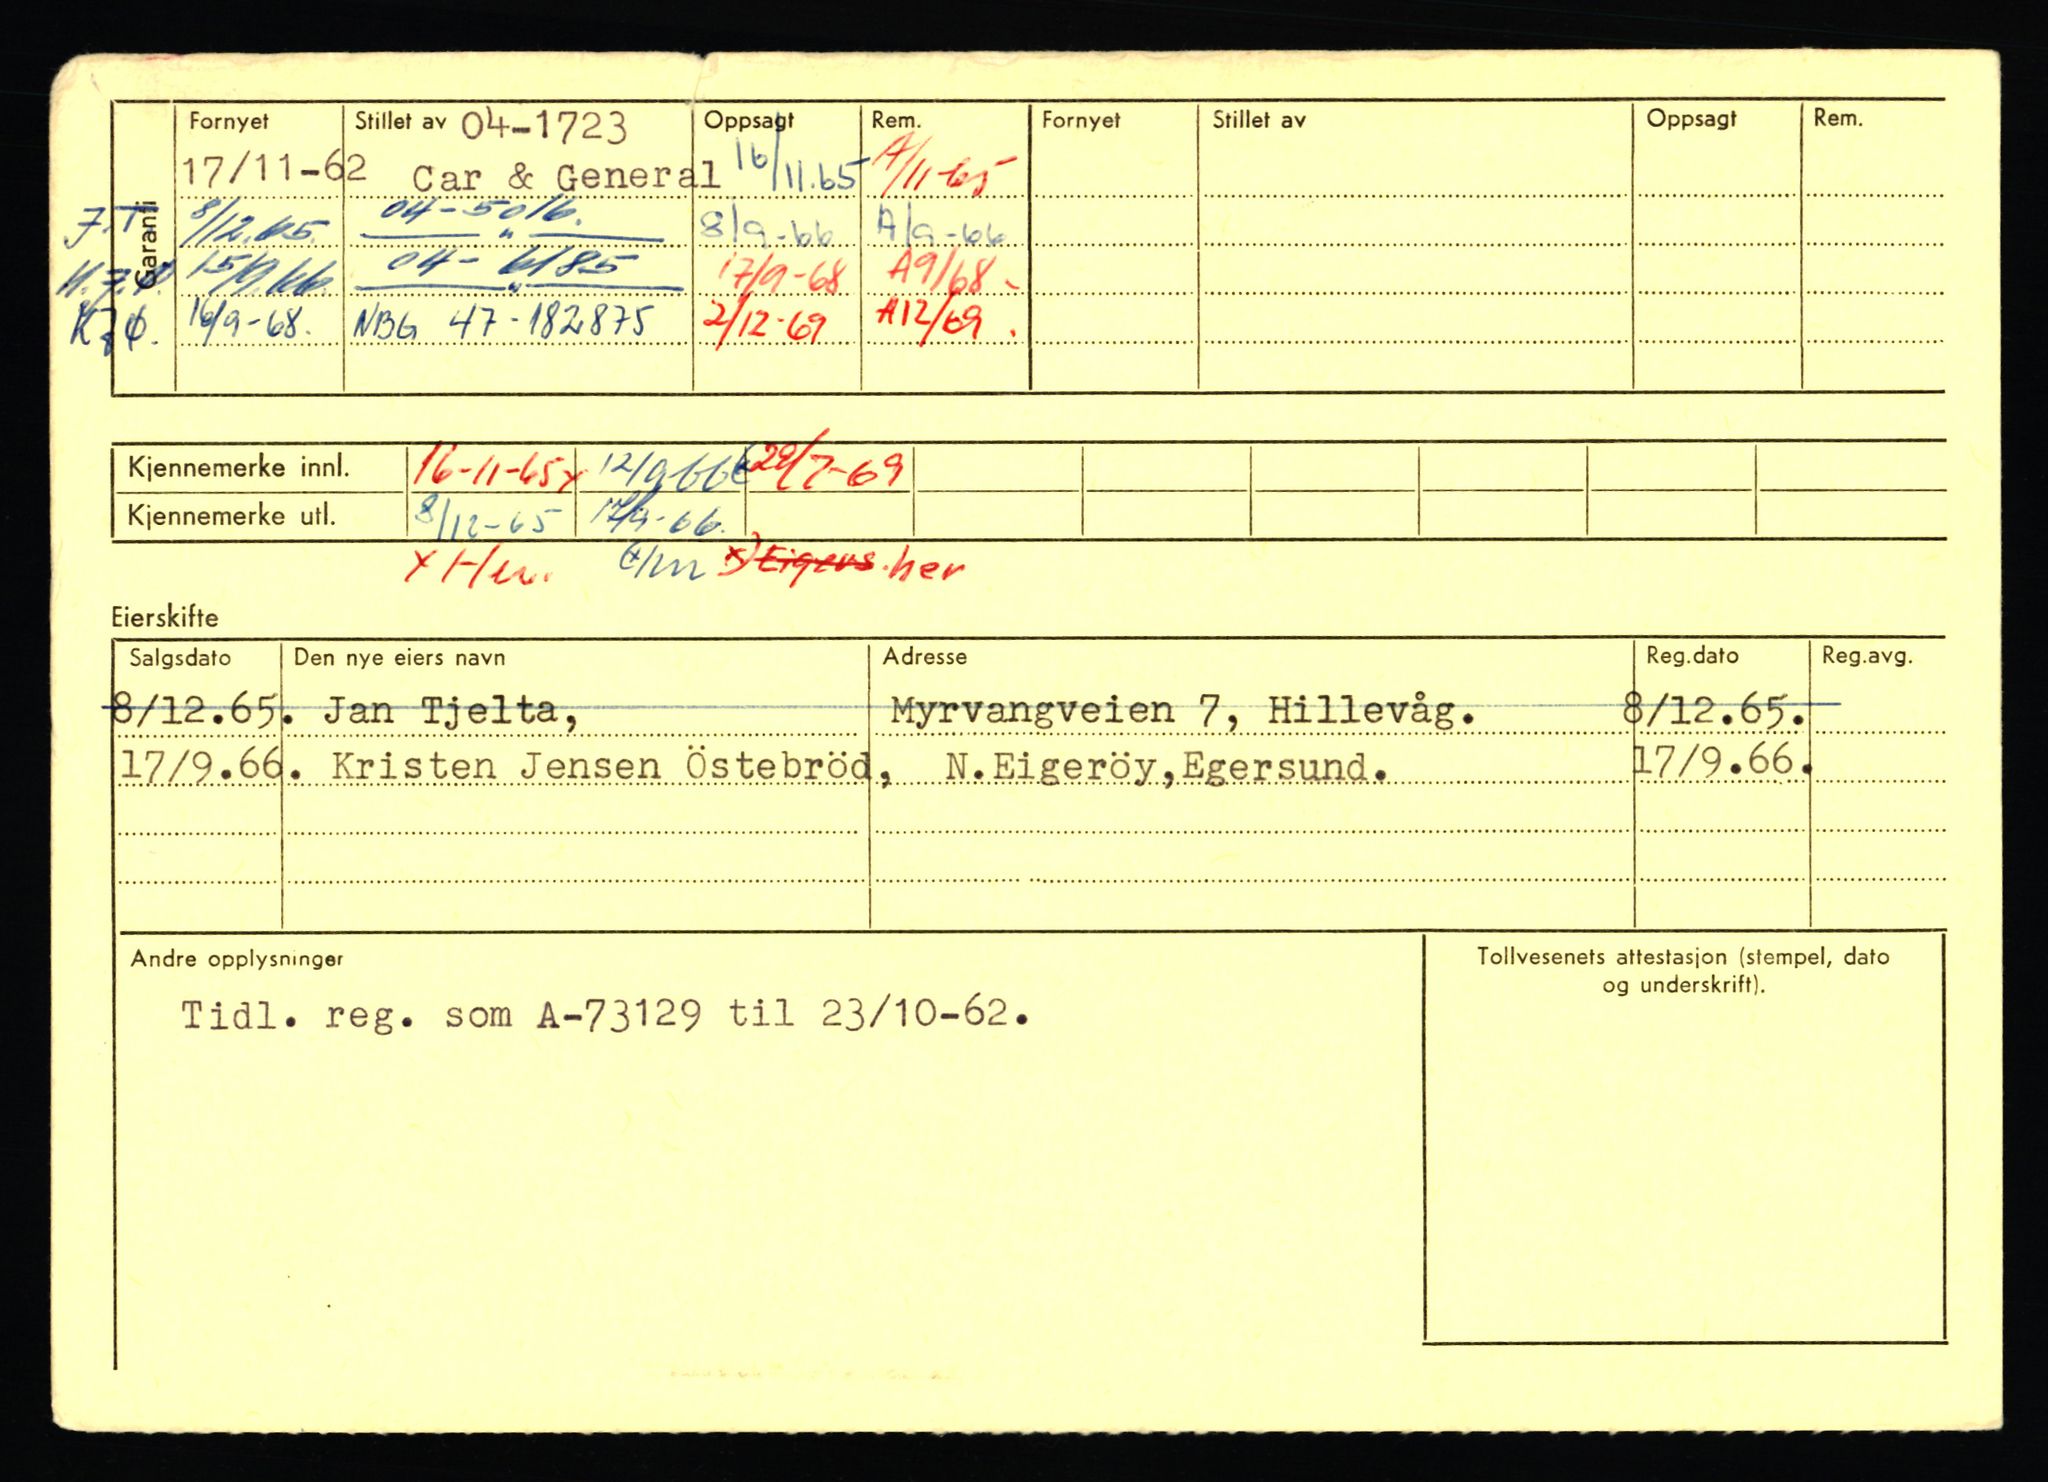 Garanti
Fornyet Stillet av 04-1723 Oppsagt Rem. Fornyet Stillet av Oppsagt Rem.
17/11-62 Car & General 16/11.65 A/11-65
J.T. 8/12.65. 04-5016. 8/9-66 A/9-66
K.J.Ø. 15/9.66. 04-6185 17/9-68 A9/68.
K.J.Ø. 16/9-68. NBG 47-182875 2/12-69 A12/69.
Kjennemerke innl. 16-11-65x 12/9-66 29/7-69
Kjennemerke utl. 8/12-65 17/9-66.
x H/m. x) Eigers. her
Eierskifte
Salgsdato Den nye eiers navn Adresse Reg.dato Reg.avg.
8/12.65. Jan Tjelta, Myrvangveien 7, Hillevåg. 8/12.65.
17/9.66. Kristen Jensen Östebröd, N.Eigeröy,Egersund. 17/9.66.
Andre opplysninger
Tollvesenets attestasjon (stempel, dato
og underskrift).
Tidl. reg. som A-73129 til 23/10-62.